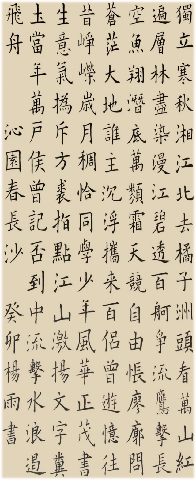 獨立寒秋湘江北去橘子洲頭看萬山紅
遍層林盡染漫江碧透百舸爭流鷹擊長
空魚翔潛底萬類霜天競自由悵廖廓問
蒼茫大地誰主沉浮攜來百侶曾遊憶往
昔崢嶸歲月稠恰同學少年風華正茂書
生意氣撝斥方裘指點江山激揚文字糞
土當年萬戶侯曾記否到中流擊水浪遏
飛舟 沁園春長沙 癸卯楊雨書